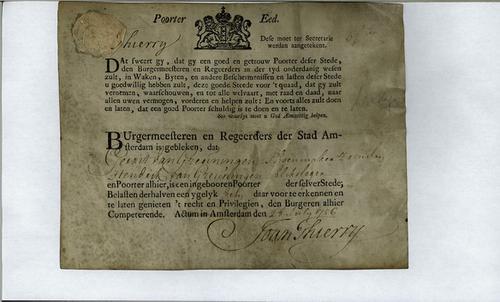 Poorter Eed.
Thierry
Dese moet ter Secretarie
werden aangetekent.
DAt sweert gy, dat gy een goed en getrouw Poorter deser Stede,
den Burgermeesteren en Regeerders in der tyd onderdanig wesen
zult, in Waken, Byten, en andere Beschermenissen en lasten deser Stede
u goedwillig hebben zult, deze goede Stede voor 't quaad, dat gy zult
vernemen, waarschouwen, en tot alle welvaart, met raad en daad, naar
allen uwen vermogen, vorderen en helpen zult: En voorts alles zult doen
en laten, dat een goed Poorter schuldig is te doen en te laten.
Soo waarlyk moet u God Almachtig helpen.
BUrgermeesteren en Regeerders der Stad Am-
sterdam is gebleken, dat
Gerrit van Groeningen
van Groeningen
en Poorter alhier, is een ingebooren Poorter der selver Stede;
Belasten derhalven een ygelyk voor te erkennen en
te laten genieten 't recht en Privilegien, den Burgeren alhier
Competerende. Actum in Amsterdam den 29 July 1756
Joan Thierry